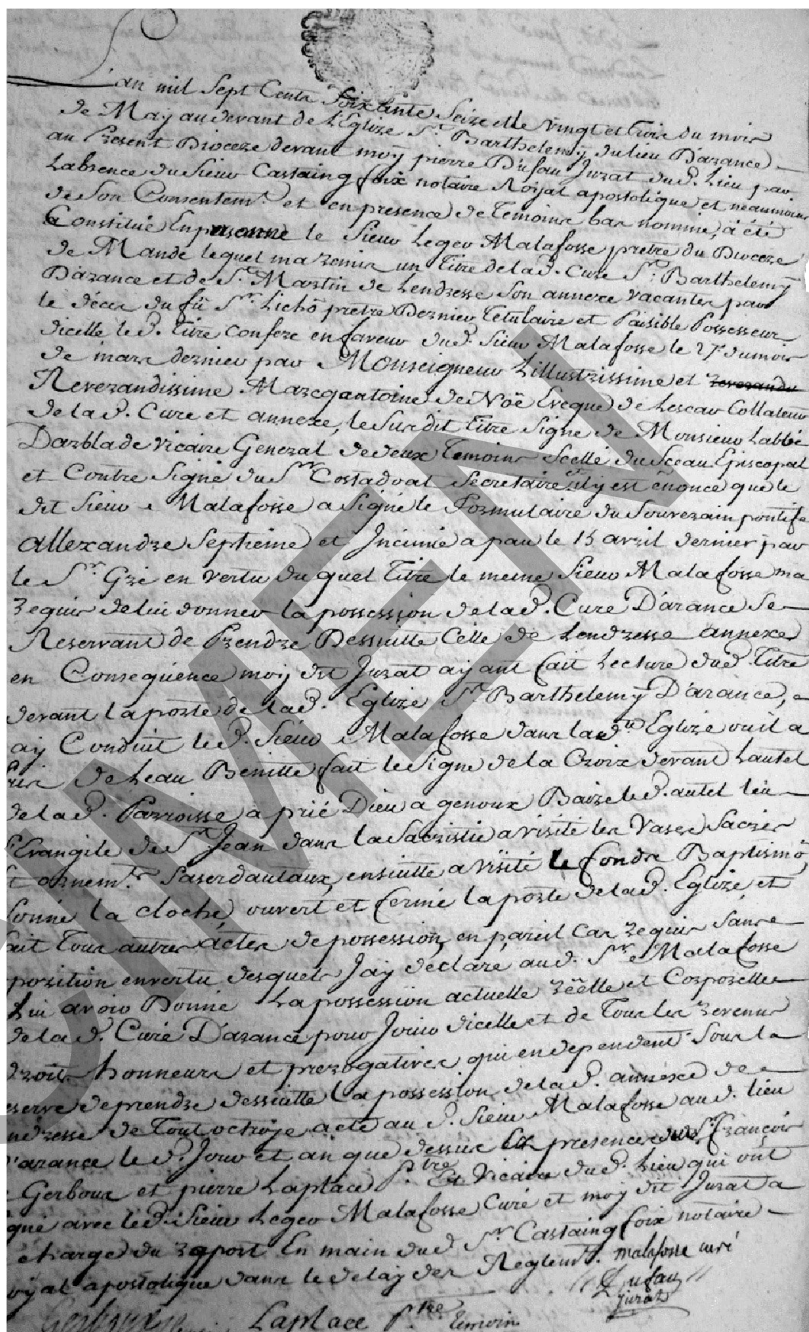 Lan mil Sept Cents Soixante Seize et le vingt et trois du mois
de May au devant de LEglize St. Barthelemy du lieu Darance
au Present Dioceze devant moy pierre Dufau Jurat dud. Lieu par
Labsence du Sieur Castaing foix notaire Royal apostolique et neaumoins
de Son Consentemt. et en presence de Temoins bas nommés, a été
Constitué En personne le Sieur Leger Malafosse pretre du Dioceze
de Mande lequel ma remis un titre de lad. Cure St. Barthelemy
Darance et de St. Martin de Lendresse Son annexe vacantes par
le deces du fû Sr. Lichô pretre Dernier Titulaire et Paisible Possesseur
dicelle le d. titre conferé en faveur dud. Sieur Malafosse le 27 du mois
de mars dernier par Monseigneur Lillustrissime et reverandi
Reverandissime Marcq antoine de Noë Eveque de Lescar Collateur
de la d. Cure et annexe, le Susdit titre Signé de Monsieur Labbé
Darblade vicaire General de deux temoins Scellé du Sceau Episcopal
et Contre Signé du Sr. Costadoat Secretaire et il y est enoncé que le
dit Sieur Malafosse a Signé le Formulaire du Souverain pontife
allexandre Septieme et Incinué a pau le 15 avril dernier par
le Sr. Gré en vertu du quel titre le meme Sieur Malafosse ma
requis de lui donner la possession de la d. Cure D'arance Se
Reservant de Prendre Dessuitte Celle de Lendresse annexe
en Consequence moy dit Jurat ayant fait Lecture dud. titre
devant la porte de la d. Eglize St. Barthelemy D'arance,
ay Conduit le d. Sieur Malafosse dans lad. Eglize ou il a
pris de Leau Benitte fait le Signe de la Croix devant Lautel
de la d. Parroisse a prié Dieu a genoux Baizé le d. autel leu
lEvangile de St. Jean dans la Sacristie a visité les Vases Sacrés
et ornemts. Saserdautaux, ensuitte a visité le fonds Baptismô,
Sonné la cloche, ouvert et fermé la porte de la d. Eglize et
fait tous autres actes de possession, en pareil Cas requis Sans
oposition en vertu desquels Jay declaré au d. Sr. Malafosse
Lui avoir Donné La possession actuelle reëlle et Corporelle
de la d. Cure D'arance pour Jouir dicelle et de Tous les revenus
droits honneurs et prerogatives qui en dependent Sous la
reserve de prendre dessuitte La possession de la d. annexe de
Lendresse de Tout octroyé acte au d. Sieur Malafosse au d. lieu
D'arance le d. Jour et an que dessus En presence des Srs. François
Gerbour et pierre Laplace Ptre. et Vicaire dud. Lieu qui ont
Signé avec led. Sieur Leger Malafosse Curé et moy dit Jurat a
charge du raport En main dud. Sr. Castaing foix notaire
Royal apostolique dans le delay des Reglemts. malafosse curé
Dufau
jurat
Laplace Ptre temoin
DUMEN